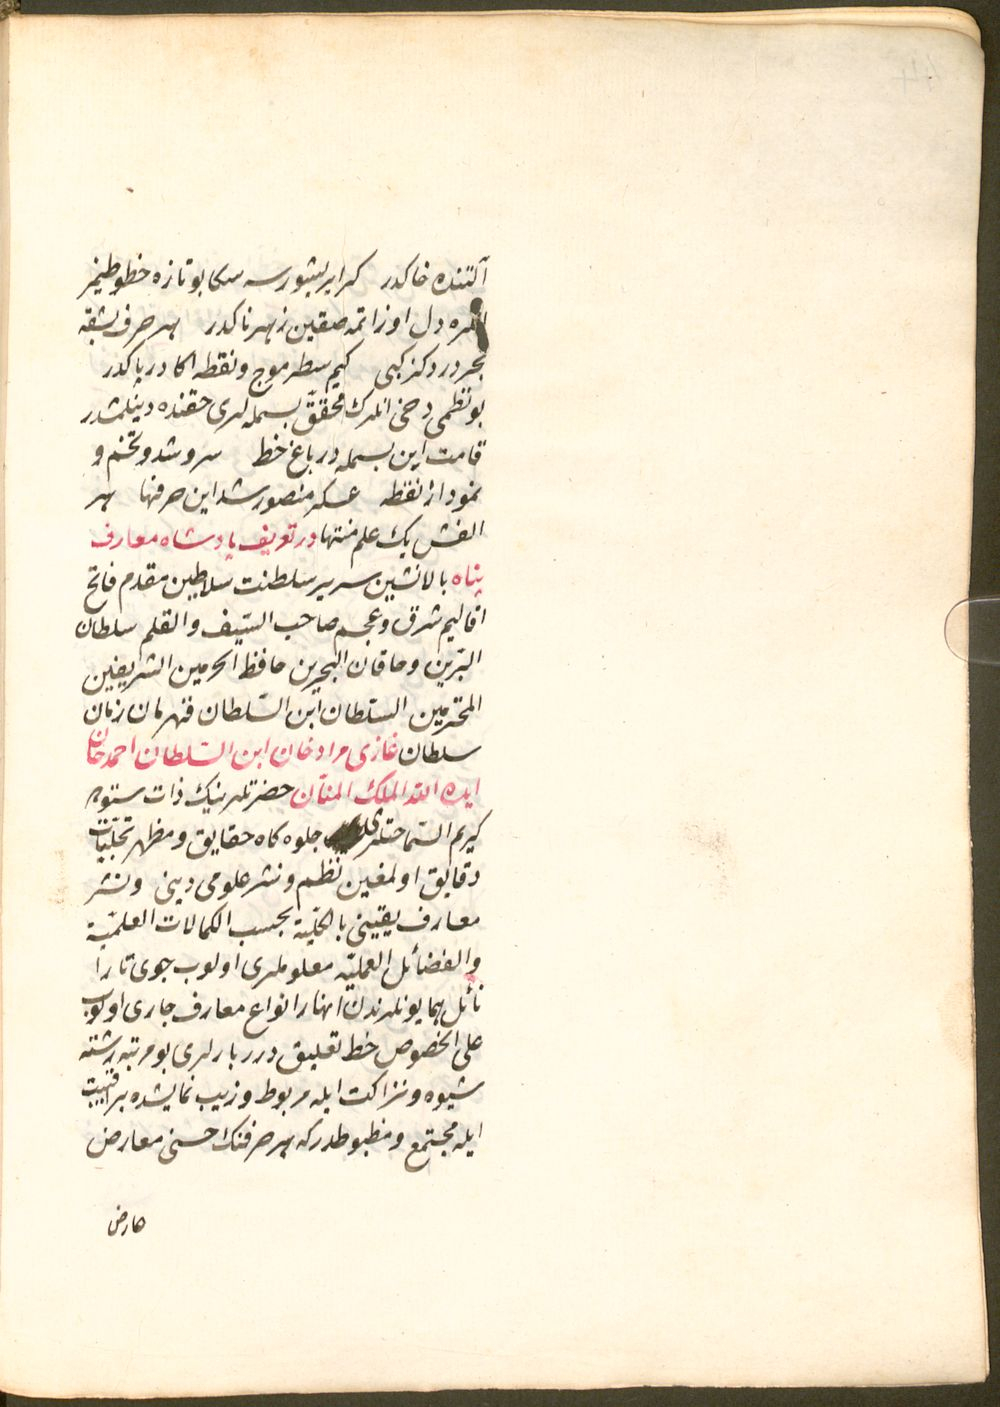 آلتنده خاكدر كرايريشورسه سكا بو تازه خطوطيخر
دل اوزاتمه صقين زهرناكدر هر حرف بشقه
بحر در دكز كبى كيم سطر موج و نقطه اكا در پاكدر
بو نظمى دخى انلرك محقق بسمله لرى حقنده دينلمشدر
قامت اين بسمله در باغ خط سرو شد و تخم و
نمود از نقطه عسكر منصور شد اين حرفها هر
الفش يك علم منتها در تعريف پادشاه معارف
پناه بالانشين سرير سلطنت سلاطين مقدم فاتح
اقاليم شرق و عجم صاحب السّيف والقلم سلطان
البرّين و خاقان البحرين حافظ الحرمين الشريفين
المحترمين السلطان ابن السّلطان قهرمان زمان
سلطان غازى مراد خان ابن السّلطان احمد خان
ايده الله الملك المنّان حضرتلرينك ذات ستوده
كريم السّماحتلرى جلوه كاه حقايق و مظهر تجلّيات
دقايق اولمغين نظم و نثر علومى دينى و نشر
معارف يقينى بالكلّية بحسب الكمالات العلميّة
والفضائل العمليّه معلوملرى اولوب جوى تارا
نائل همايونلرندن انهار انواع معارف جارى اولوب
على الخصوص خط تعليق درر بارلرى بو مرتبه رشته
شيوه و نزاكت ايله مربوط و زيب نمايشده بر
ايله مجتمع و مظبوطدركه هر حرفنك حسنى معارض
عارض